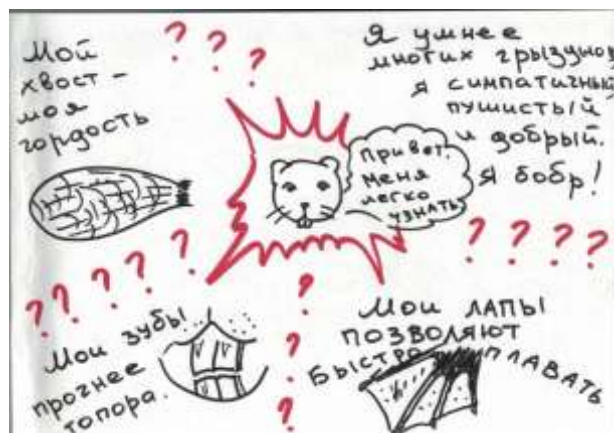 Мой
хвост -
моя
гордость
? ? ?
Я умнее
многих грызунов
я симпатичный
пушистый
и добрый.
Я бобр!
Привет.
Меня
легко
узнать
? ? ? ? ? ?
? ? ? ?
Мои зубы
прочнее
топора.
?
?
?
?
Мои лапы
позволяют
быстро плавать